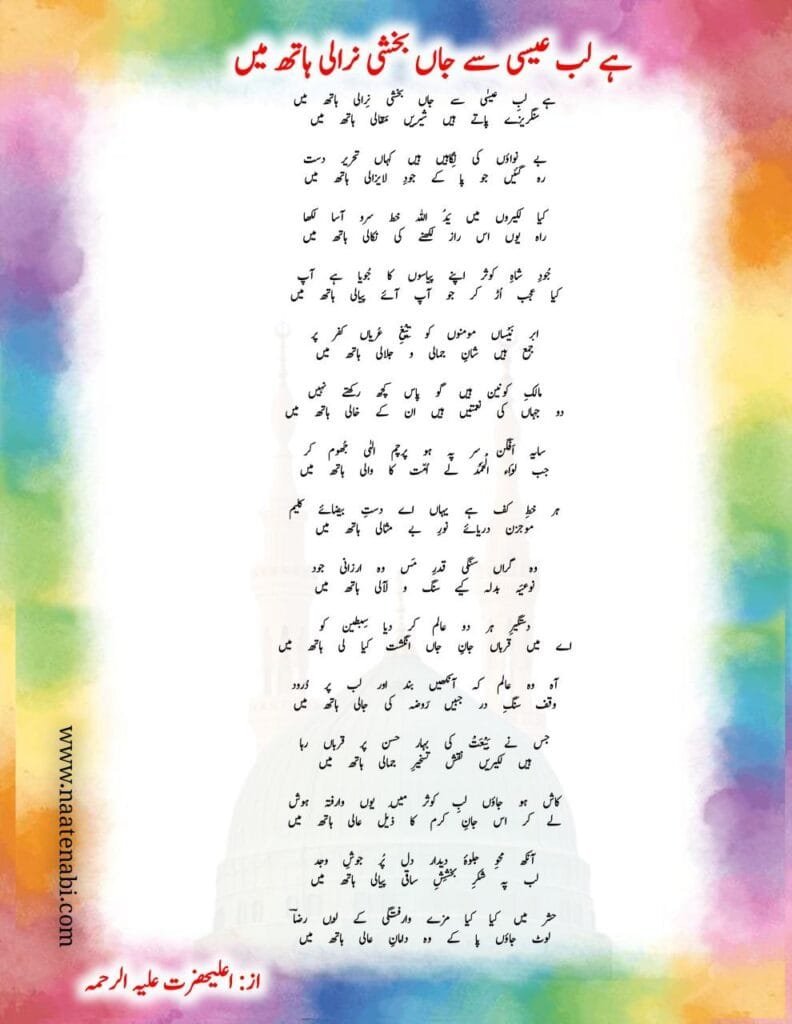 ہے لب عیسی سے جاں بخشی نرالی ہاتھ میں
ہے لبِ عیسٰی سے جاں بخشی نِرالی ہاتھ میں
سنگریزے پاتے ہیں شیریں مَقالی ہاتھ میں
بے نواؤں کی نِگاہیں ہیں کہاں تحریر دست
رہ گئیں جو پا کے جودِ لایزالی ہاتھ میں
کیا لکیروں میں یَدُ اللہ خط سرو آسا لکھا
راہ یوں اس راز لکھنے کی نکالی ہاتھ میں
جُودِ شاہِ کوثر اپنے پیاسوں کا جُویا ہے آپ
کیا عجب اُڑ کر جو آپ آئے پیالی ہاتھ میں
ابر نَیْساں مومنوں کو تَیْغِ عُریاں کفر پر
جمع ہیں شانِ جمالی و جلالی ہاتھ میں
مالکِ کونین ہیں گو پاس کچھ رکھتے نہیں
دو جہاں کی نعمتیں ہیں ان کے خالی ہاتھ میں
سایہ اَفگن سر پہ ہو پرچم الٰہی جُھوم کر
جب لِوَاء الْحَمْد لے اُمّت کا والی ہاتھ میں
ہر خطِ کف ہے یہاں اے دستِ بیضائے کلیم
موجزن دریائے نورِ بے مثالی ہاتھ میں
وہ گراں سنگی قدرِ مَس وہ ارزانی جود
نوعیّہ بدلہ کیے سنگ و لآلی ہاتھ میں
دستگیرِ ہر دو عالم کر دیا سِبطین کو
اے میں قرباں جانِ جاں انگشت کیا لی ہاتھ میں
آہ وہ عالم کہ آنکھیں بند اور لب پر دُرود
وقف سنگِ در جبیں رَوضہ کی جالی ہاتھ میں
جس نے بَیْعَتْ کی بہارِ حسن پر قرباں رہا
ہیں لکیریں نقشِ تسخیرِ جمالی ہاتھ میں
کاش ہو جاؤں لبِ کوثر میں یوں وارفتہ ہوش
لے کر اس جانِ کرم کا ذیل عالی ہاتھ میں
آنکھ محوِ جلوۂ دیدار دل پُر جوشِ وجد
لب پہ شکرِ بخشِشِ ساقی پیالی ہاتھ میں
حشر میں کیا کیا مزے وارفتگی کے لوں رضاؔ
لوٹ جاؤں پا کے وہ دامانِ عالی ہاتھ میں
www.naatenabi.com
از: اعلیحضرت علیہ الرحمہ